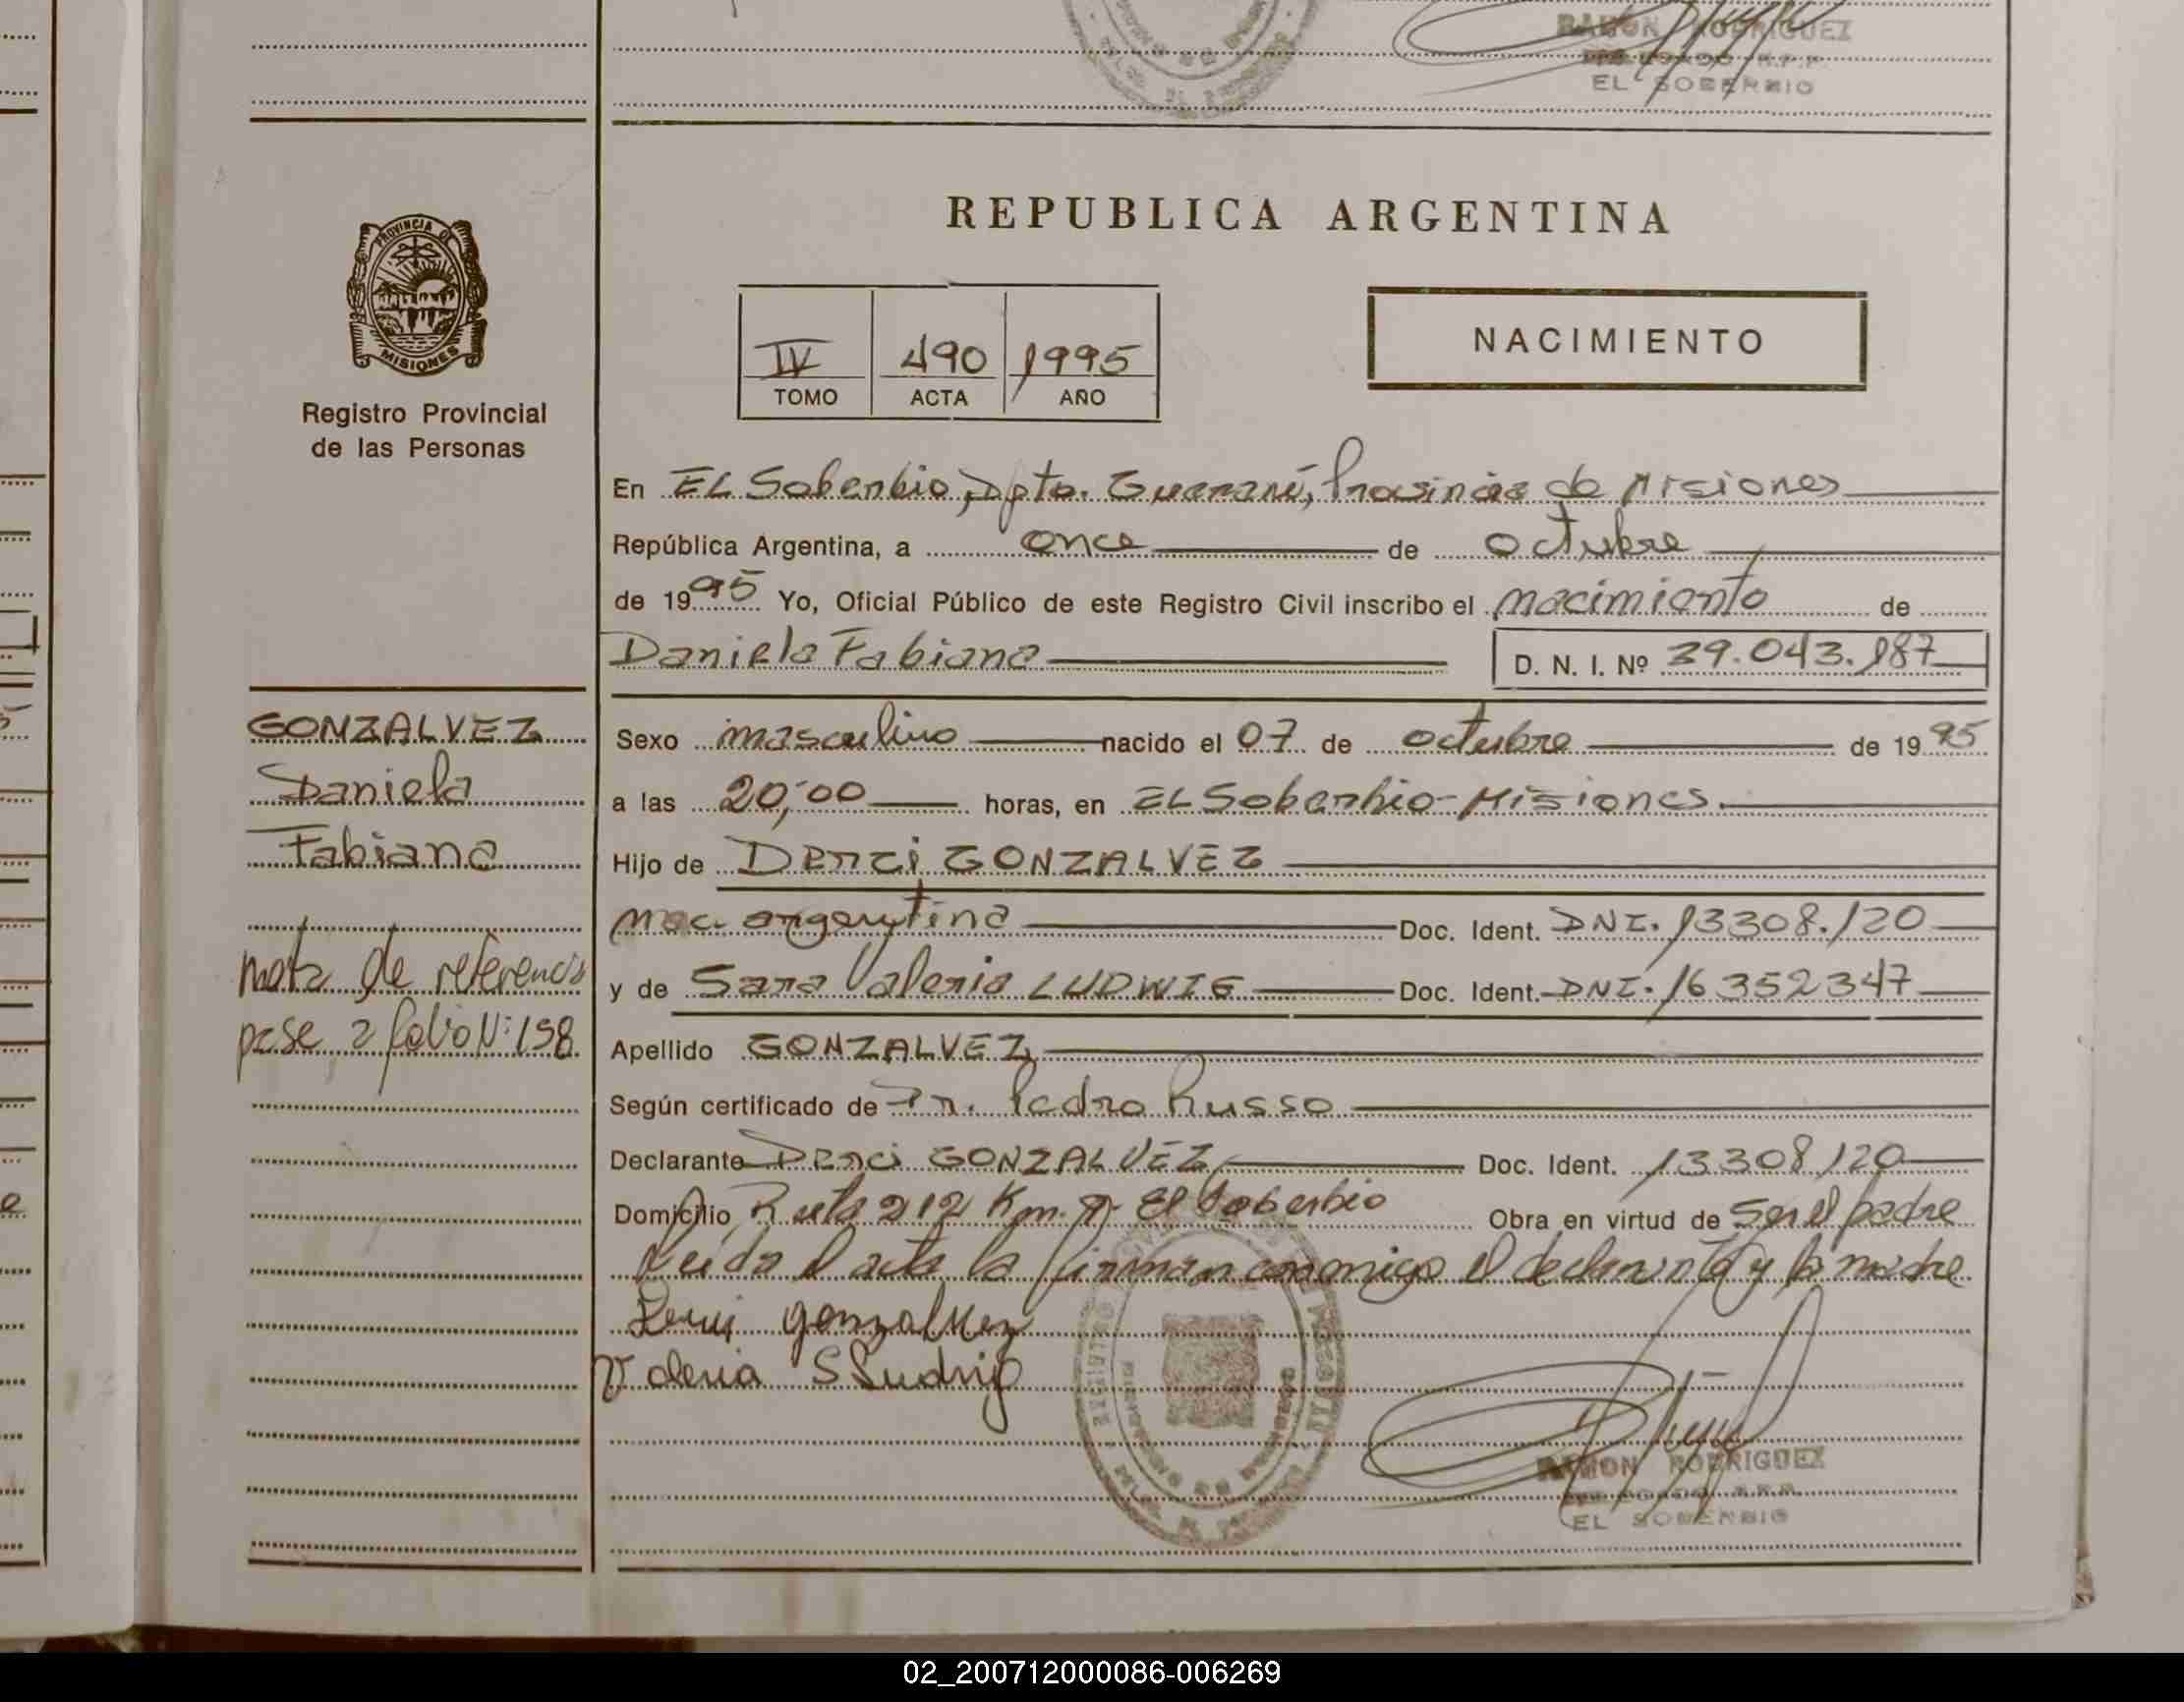 RAMON RODRIGUEZ
EL SOBERBIO
REPUBLICA ARGENTINA
PROVINCIA DE
MISIONES
Registro Provincial
de las Personas
IV 490 1995
TOMO ACTA AÑO
NACIMIENTO
En EL Soberbio, Dpto. Guaraní, Provincia de Misiones
República Argentina, a once de octubre
de 1995 Yo, Oficial Público de este Registro Civil inscribo el nacimiento de
Daniela Fabiana D. N. I. Nº 39.043.187
GONZALVEZ
Daniela
Fabiana
nota de referencia
pase a folio Nº 158
Sexo masculino nacido el 07 de octubre de 1995
a las 20,00 horas, en EL Soberbio-Misiones.
Hijo de Derci GONZALVEZ
nac argentina Doc. Ident. DNI. 13308.120
y de Sara Valeria LUDWIG Doc. Ident. DNI. 16352347
Apellido GONZALVEZ
Según certificado de Dr. Pedro Russo
Declarante Derci GONZALVEZ Doc. Ident. 13308120
Domicilio Ruta 212 Km. 7- El Soberbio Obra en virtud de Ser el padre
Leida el acta la firman conmigo el declarante y la madre
Derci gonzalvez
Valeria S Ludwig
RAMON RODRIGUEZ
EL SOBERBIO
02_200712000086-006269